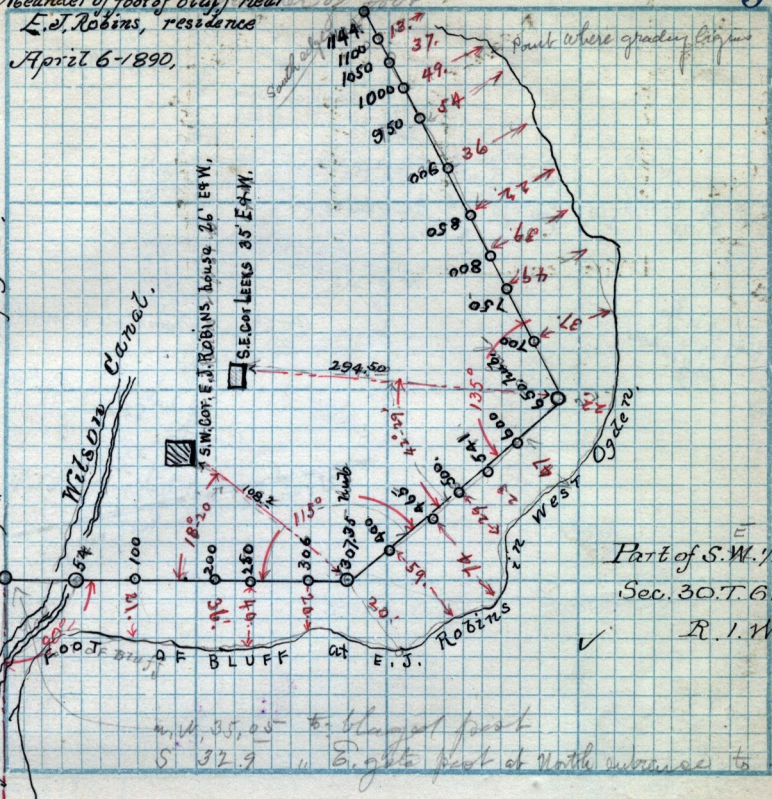 Meander of foot of bluff near
E.J. Robins, residence
April 6-1890,
Point where grading begins
1144.
1100
1050
1000
950
900
850
800
750
700
650. hub.
600
541
500.
465
400
307.35 hub
306
250
200
100
54
13.
37.
49.
54
36
22.
39.
49.
37.
47
29
74
65.
20.
20.
40.
36.
21.
S.W. Cor. E.J. ROBINS house 26' E&W.
S.E. Cor LEEKS 35' E&W.
294.50
108.2
135°
42°-29'
115°
18°-20
90°
Wilson Canal.
FOOT OF BLUFF at E.J. Robins in West Ogden.
OF BLUFF
Part of S.W. 1/
Sec. 30. T. 6.
R. 1. W
N.W. 35.05 to blazed post
S 32.9 " E. gate post at North entrance to